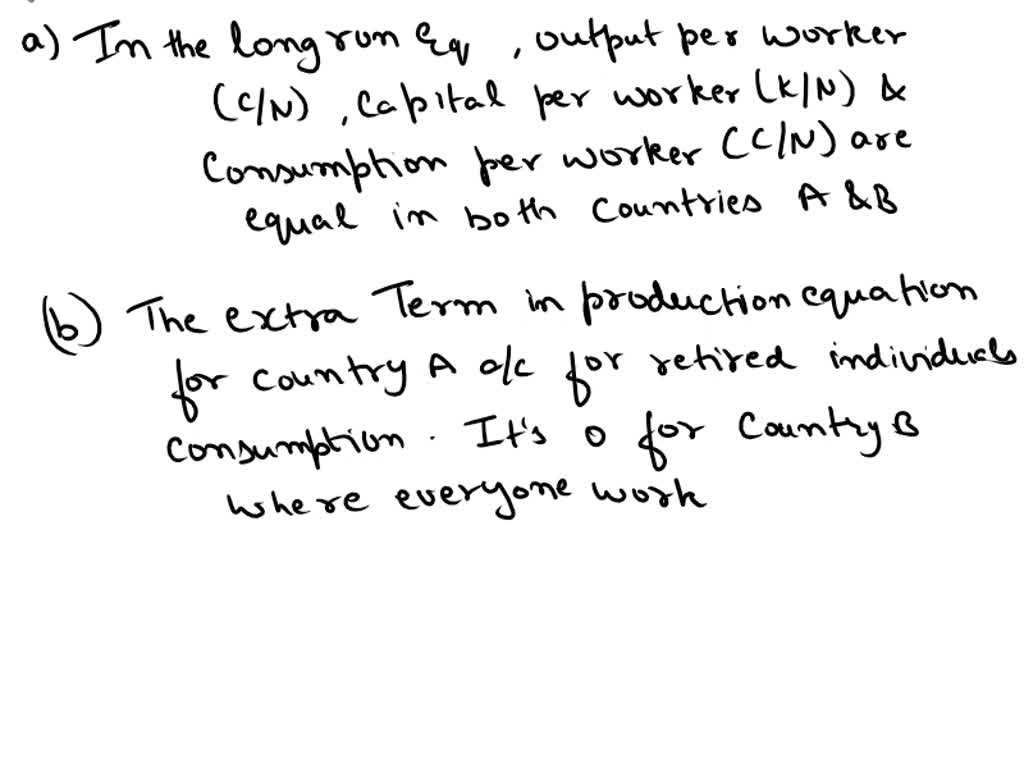 a) In the long run Eq , output per worker
(C/N) , Capital per worker (K/N) &
Consumption per worker (C/N) are
equal in both Countries A & B
(b) The extra Term in production equation
for country A a/c for retired individuals
consumption . It's 0 for Country B
where everyone work